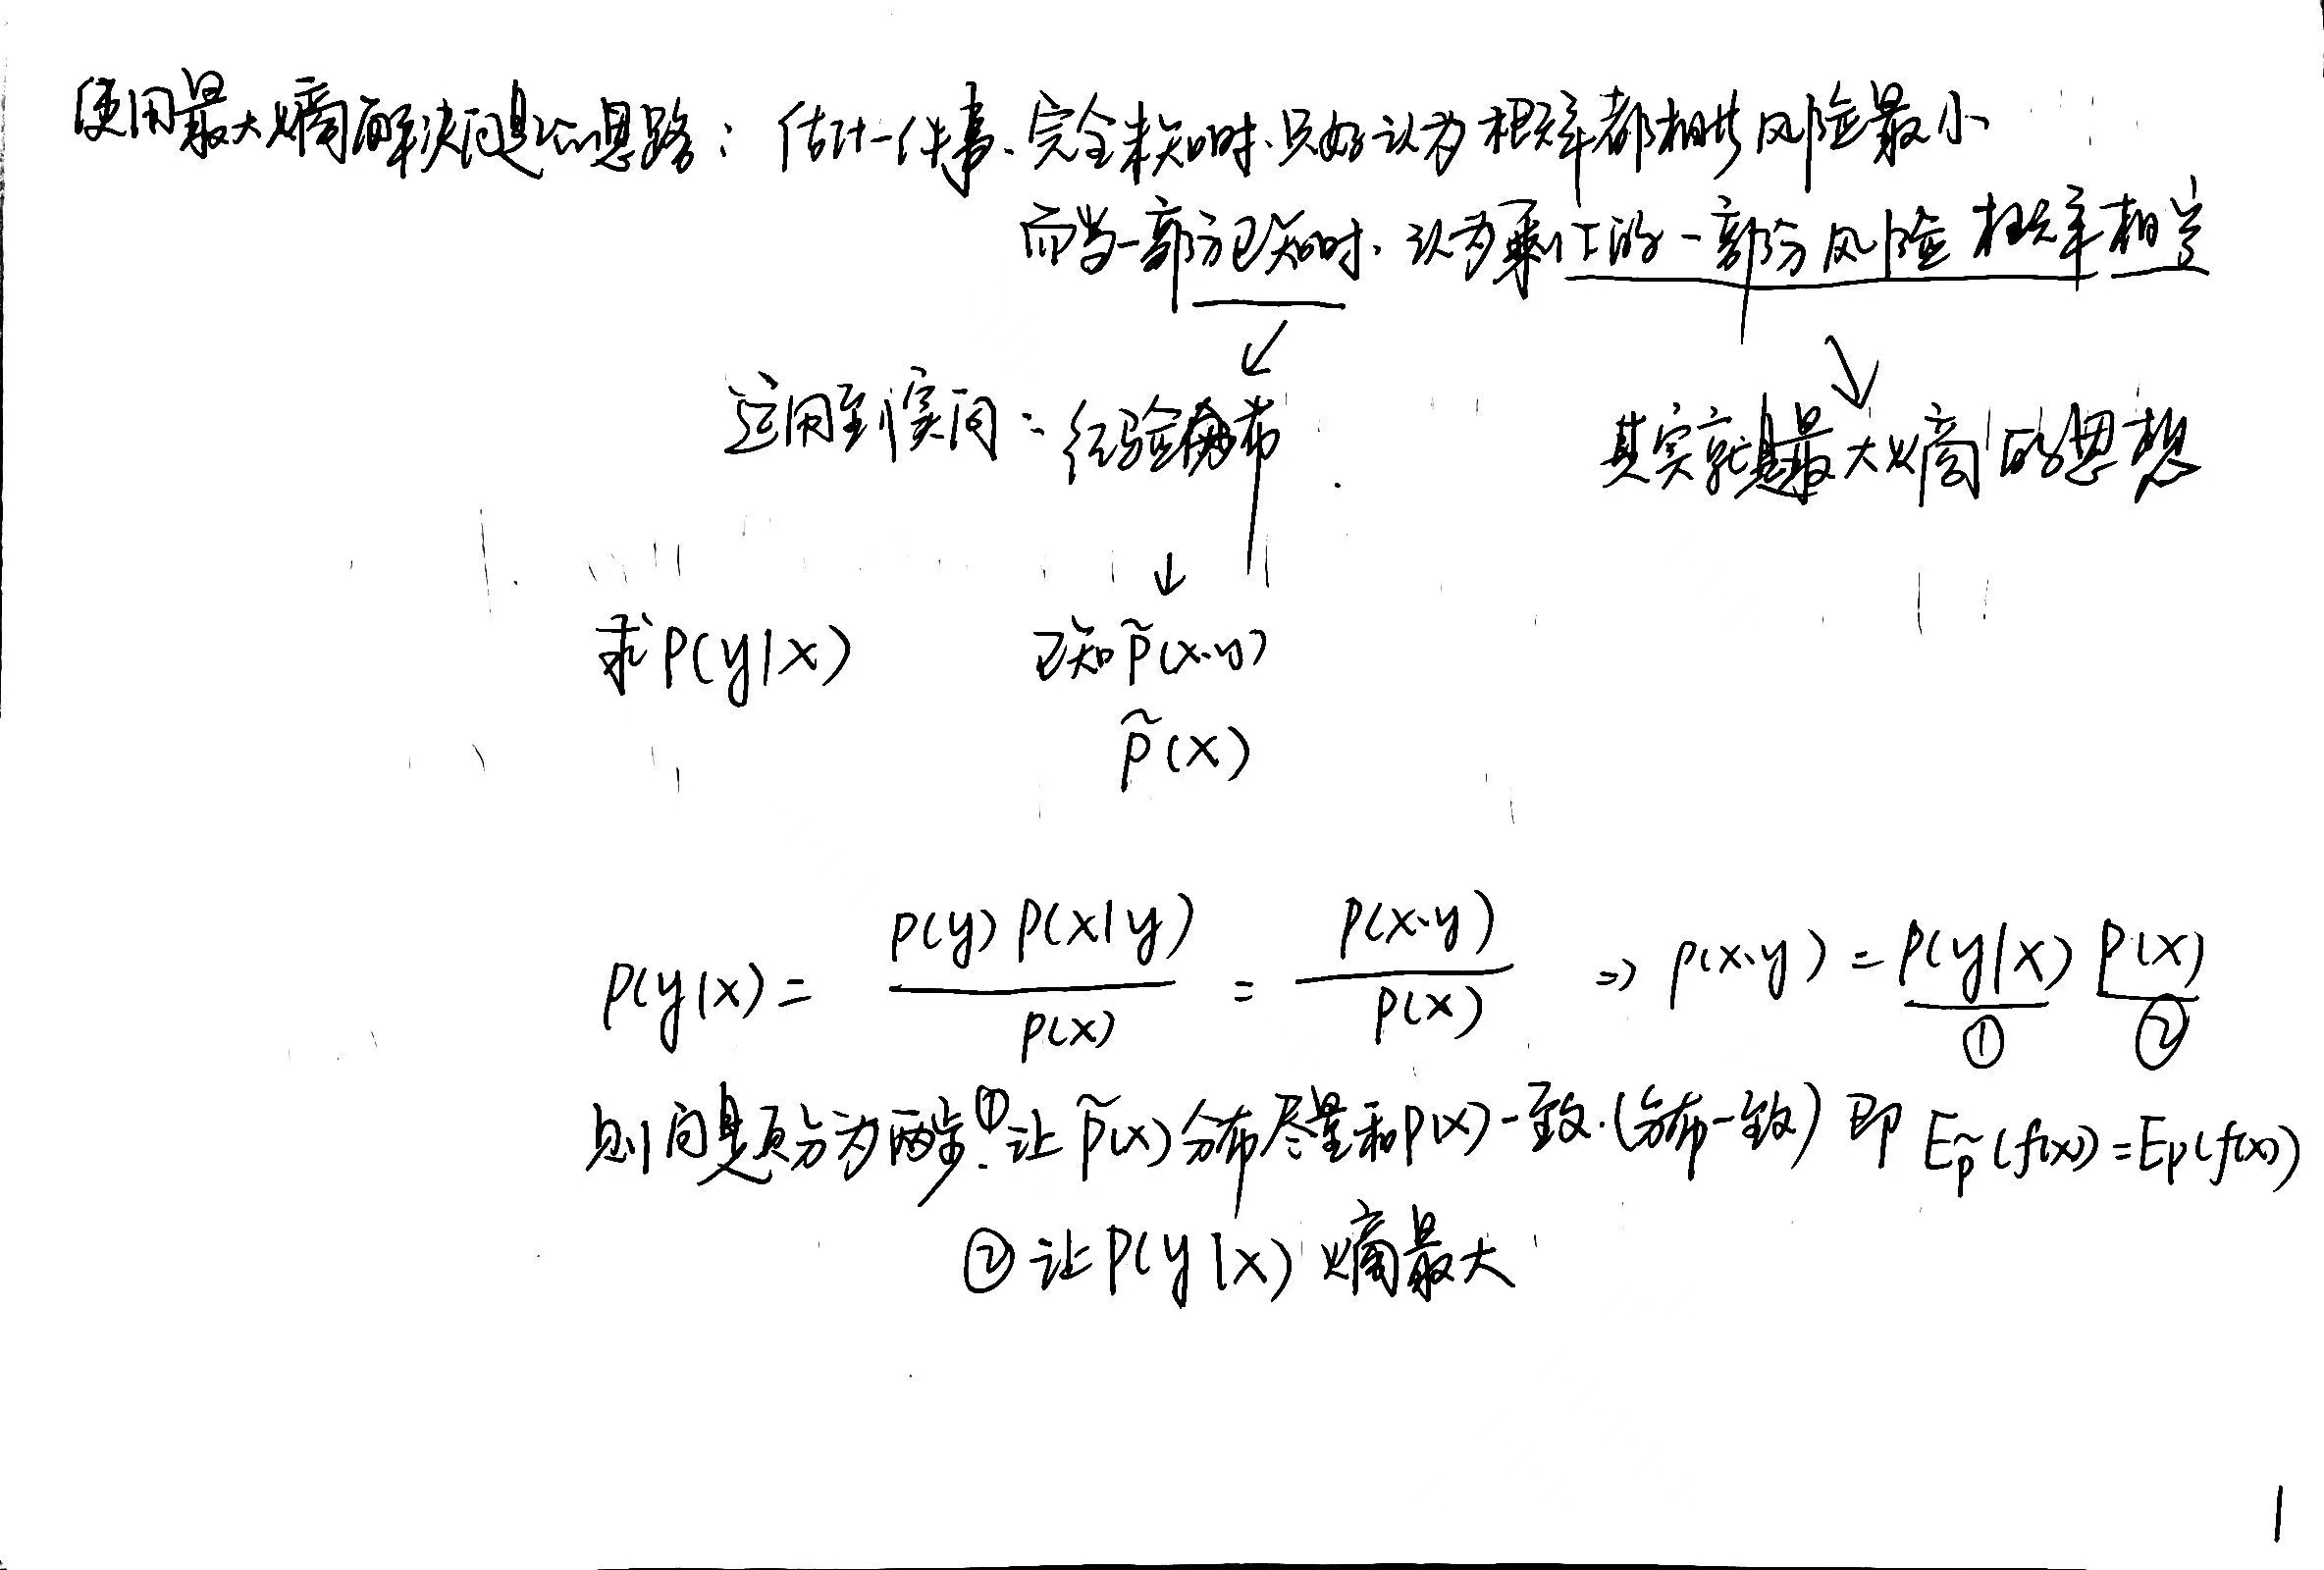 使用最大熵解决问题的思路：估计一件事、完全未知时、只好认为概率都相等风险最小
而当一部分已知时、认为剩下的一部分风险概率相等
运用到实间：经验分布
其实就是最大熵的思想
求P(y|x) 已知p̃(x.y)
p̃(x)
P(y|x) = P(y)P(x|y) / P(x) = P(x.y) / P(x) => P(x.y) = P(y|x) P(x)
① ②
则问题分为两步.①让 p̃(x) 分布尽量和P(x)一致.(分布一致) 即 E_p̃(f(x)) = E_p(f(x))
②让P(y|x) 熵最大
1